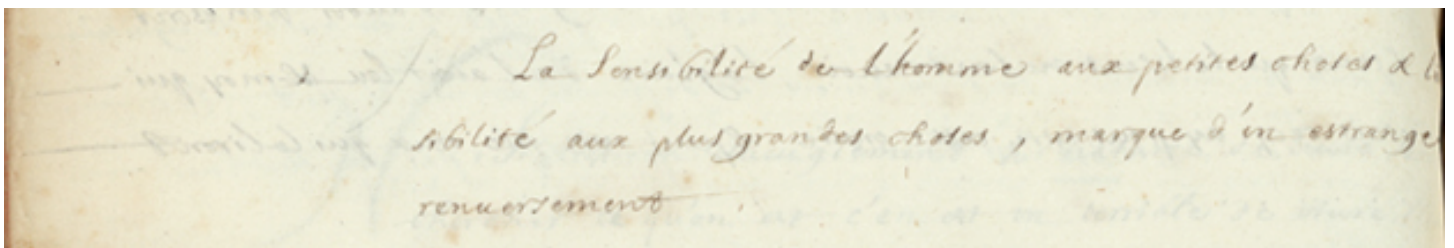 La sensibilité de l'homme aux petites choses &
sibilité aux plus grandes choses, marque d'un estrange
renuersement.